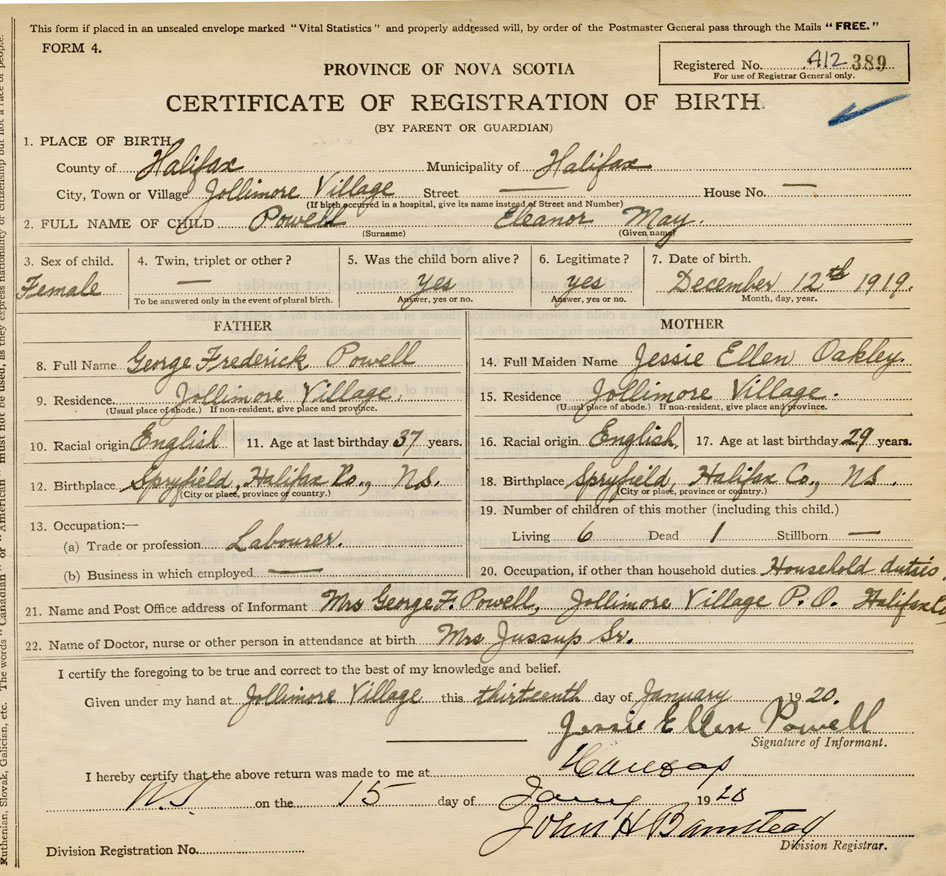 This form if placed in an unsealed envelope marked "Vital Statistics" and properly addressed will, by order of the Postmaster General pass through the Mails "FREE."
FORM 4.
Registered No. 412 389
For use of Registrar General only.
PROVINCE OF NOVA SCOTIA
CERTIFICATE OF REGISTRATION OF BIRTH
(BY PARENT OR GUARDIAN)
1. PLACE OF BIRTH
County of Halifax Municipality of Halifax
City, Town or Village Jollimore Village Street — House No. —
(If birth occurred in a hospital, give its name instead of Street and Number)
2. FULL NAME OF CHILD Powell Eleanor May.
(Surname) (Given name)
3. Sex of child. 4. Twin, triplet or other? 5. Was the child born alive? 6. Legitimate? 7. Date of birth.
Female — yes yes December 12th 1919.
To be answered only in the event of plural birth. Answer, yes or no. Answer, yes or no. Month, day, year.
FATHER
8. Full Name George Frederick Powell
9. Residence. Jollimore Village.
(Usual place of abode.) If non-resident, give place and province.
10. Racial origin English 11. Age at last birthday 37 years.
12. Birthplace Spryfield, Halifax Co., N.S.
(City or place, province or country.)
13. Occupation:—
(a) Trade or profession Labourer.
(b) Business in which employed —
MOTHER
14. Full Maiden Name Jessie Ellen Oakley.
15. Residence Jollimore Village.
(Usual place of abode.) If non-resident, give place and province.
16. Racial origin English, 17. Age at last birthday 29 years.
18. Birthplace Spryfield, Halifax Co., N.S.
(City or place, province or country.)
19. Number of children of this mother (including this child.)
Living 6 Dead 1 Stillborn —
20. Occupation, if other than household duties Household duties.
21. Name and Post Office address of Informant Mrs George F. Powell, Jollimore Village P.O. Halifax Co
22. Name of Doctor, nurse or other person in attendance at birth Mrs Jussup Sr.
I certify the foregoing to be true and correct to the best of my knowledge and belief.
Given under my hand at Jollimore Village this thirteenth day of January 1920.
Jessie Ellen Powell
Signature of Informant.
I hereby certify that the above return was made to me at
N.S on the 15 day of Jany 1920
John H
Division Registrar.
Division Registration No.
Ruthenian, Slovak, Galician, etc. The words "Canadian" or "American" must not be used, as they express nationality or citizenship but not a race of people.